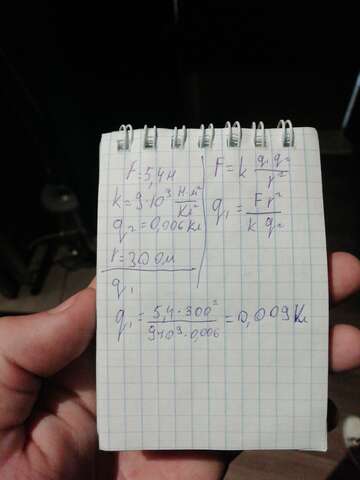 F=5,4Н
k=9·10⁹ Н·м²/Кл²
q₂=0,006Кл
r=300м
q₁
F=k q₁q₂/r²
q₁=Fr²/k q₂
q₁=5,4·300²/9·10⁹·0,006=0,009Кл